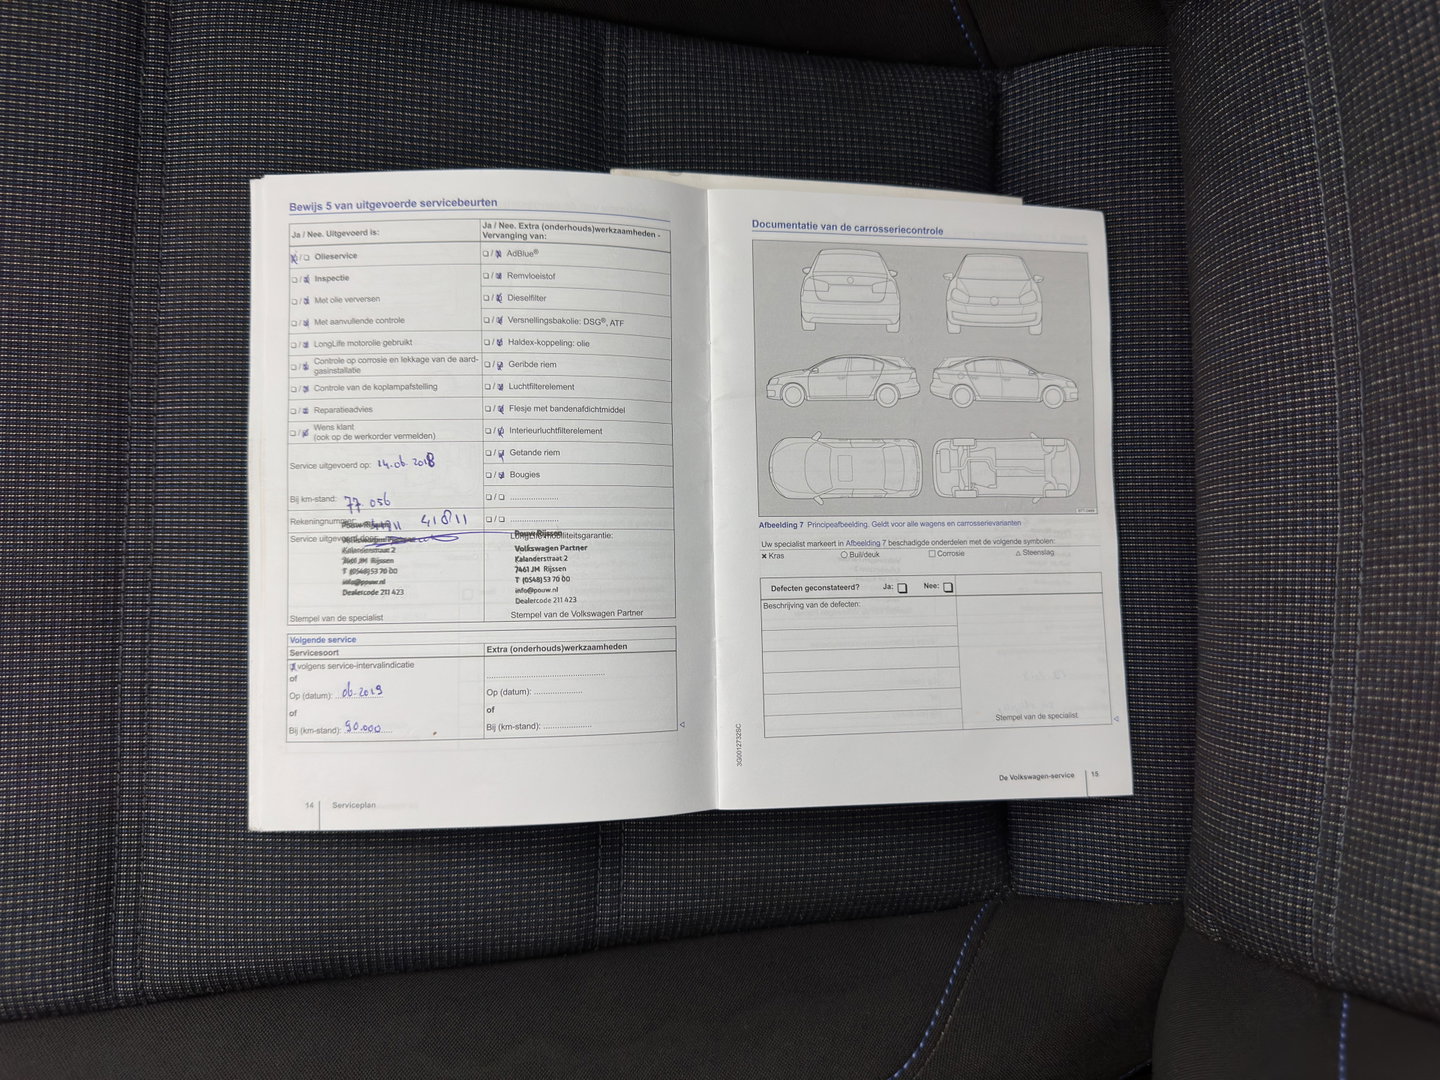 Bewijs 5 van uitgevoerde servicebeurten
Ja / Nee. Uitgevoerd is:
Olieservice
Inspectie
Met olie verversen
Met aanvullende controle
LongLife motorolie gebruikt
Controle op corrosie en lekkage van de aard-
gasinstallatie
Controle van de koplampafstelling
Reparatieadvies
Wens klant
(ook op de werkorder vermelden)
Service uitgevoerd op: 14.06.2018
Bij km-stand: 77.056
Rekeningnummer: 41811
Service uitgevoerd
Kalanderstraat 2
7461 JM Rijssen
T (0548) 53 70 00
info@pouw.nl
Dealercode 211 423
Stempel van de specialist
Ja / Nee. Extra (onderhouds)werkzaamheden -
Vervanging van:
AdBlue®
Remvloeistof
Dieselfilter
Versnellingsbakolie: DSG®, ATF
Haldex-koppeling: olie
Geribde riem
Luchtfilterelement
Flesje met bandenafdichtmiddel
Interieurluchtfilterelement
Getande riem
Bougies
LongLife-mobiliteitsgarantie:
Pouw Rijssen
Volkswagen Partner
Kalanderstraat 2
7461 JM Rijssen
T (0548) 53 70 00
info@pouw.nl
Dealercode 211 423
Stempel van de Volkswagen Partner
Volgende service
Servicesoort
volgens service-intervalindicatie
of
Op (datum): 06-2019
of
Bij (km-stand): 90.000
Extra (onderhouds)werkzaamheden
Op (datum):
of
Bij (km-stand):
14 Serviceplan
Documentatie van de carrosseriecontrole
Afbeelding 7 Principeafbeelding. Geldt voor alle wagens en carrosserievarianten
Uw specialist markeert in Afbeelding 7 beschadigde onderdelen met de volgende symbolen:
Kras Buil/deuk Corrosie Steenslag
Defecten geconstateerd? Ja: Nee:
Beschrijving van de defecten:
Stempel van de specialist
3G0012732SC
De Volkswagen-service 15